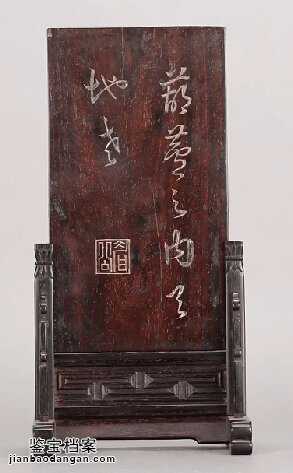 葫蘆之内天
地
鉴宝档案
jianbaodangan.com